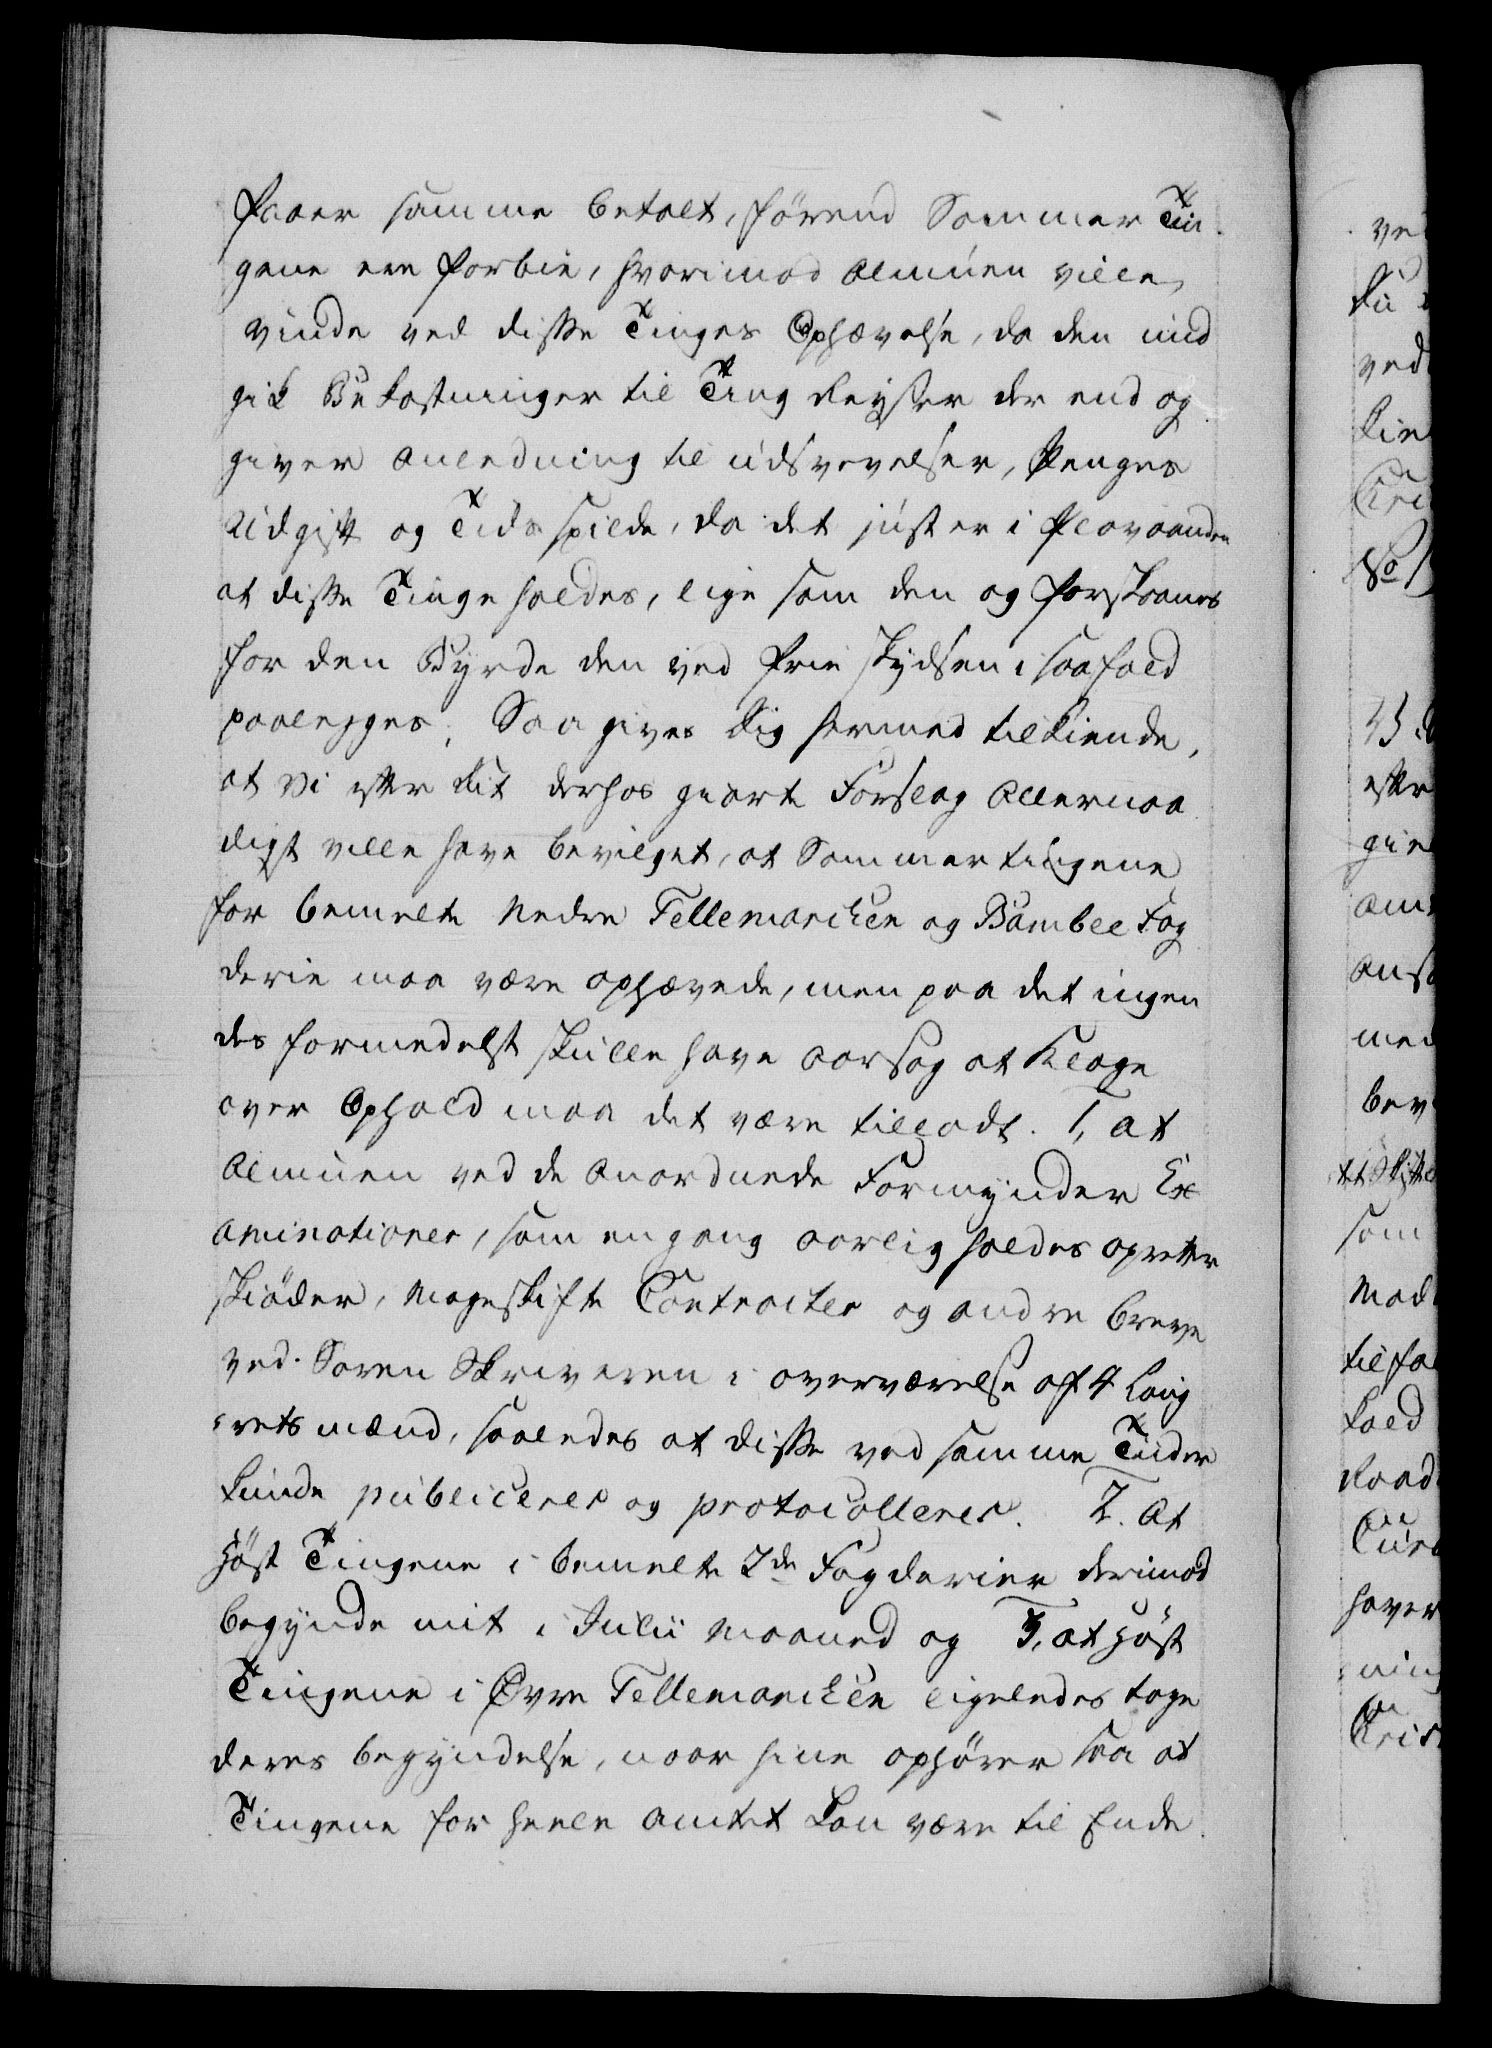 faaer samme betalt, förend Sommer Tin
gene ere forbie, hvorimod Almúen ville
vinde ved disse Tinges Ophævelse, da den und
gik Bekostninger til Ting Reyser der end og
giver Anledning til udsvevelser, Penges
Udgift og Tids spilde, da det júst er i Plovaanden
at disse Tinge holdes, lige som den og forskaanes
for den Byrde den ved frie skydsen i saafald
paalegges; Saa gives dig hermed tilkiende,
at Vi efter dit derhos giorte Forslag Allernaa
digst ville have bevilget, at Sommertingene
for bemelte Nedre Tellemarchen og Bamble Fog
derie maa være ophævede, men paa det ingen
des formedelst skulle have aarsag at Klage
over Ophold maa det være tilladt. 1, at
Almúen ved de Anordnede Formynder Ex
aminationer, som en gang aarlig holdes opretter
Skiöder, Mageskifte Contracter og andre breve
ved Soren Skriveren i overværelse af 4 Laug
retsmænd, saaledes at disse ved samme Tiider
kunde publiceres og protocolleres. 2. At
Höst Tingene i bemelte 2de Fogderier derimod
begynde mit i Julii Maaned og 3, at Höst
Tingene i Øvre Tellemarchen ligeledes tage
deres begyndelse, naar hine ophörer saa at
Tingene for heele Amtet kan være til Ende